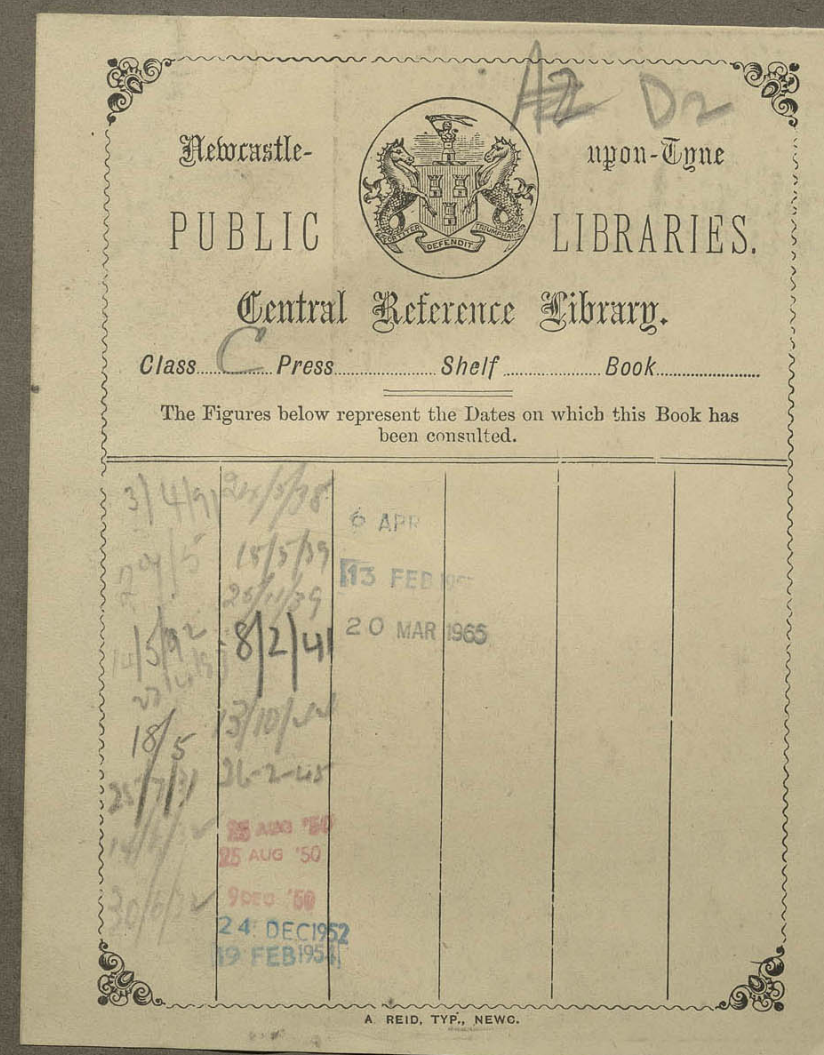 A2 D2
Newcastle- upon-Tyne
PUBLIC LIBRARIES.
FORTITER DEFENDIT TRIUMPHANS
Central Reference Library.
Class C Press Shelf Book
The Figures below represent the Dates on which this Book has
been consulted.
3/4/91
14/5/92
18/5
25/7/31
30/6/32
15/5/39
25/11/39
8/2/41
26-2-45
25 AUG '50
25 AUG '50
9 DEC '50
24 DEC 1952
19 FEB 1954
6 APR
13 FEB
20 MAR 1965
A. REID, TYP., NEWC.